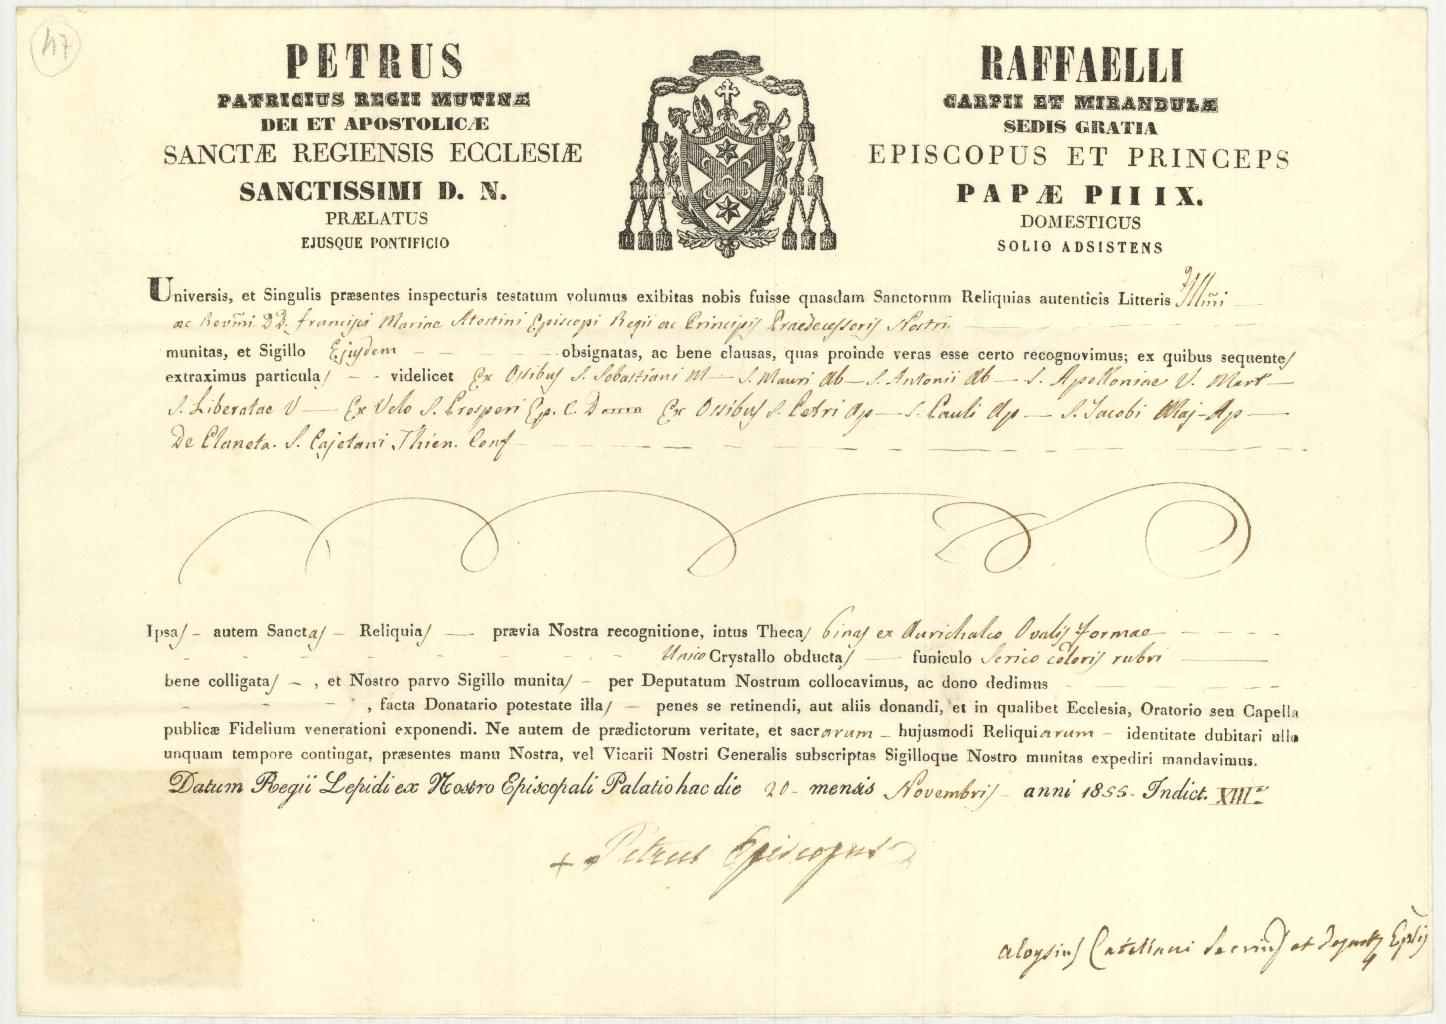 47
PETRUS RAFFAELLI
PATRICIUS REGII MUTINÆ CARPII ET MIRANDULÆ
DEI ET APOSTOLICÆ SEDIS GRATIA
SANCTÆ REGIENSIS ECCLESIÆ EPISCOPUS ET PRINCEPS
SANCTISSIMI D. N. PAPÆ PII IX.
PRÆLATUS DOMESTICUS
EJUSQUE PONTIFICIO SOLIO ADSISTENS
Universis, et Singulis præsentes inspecturis testatum volumus exibitas nobis fuisse quasdam Sanctorum Reliquias autenticis Litteris Illm̃i
ac Revm̃i D.D. Francisci Mariae Atestini Episcopi Regii ac Principis Praedecessoris Nostri
munitas, et Sigillo Ejusdem obsignatas, ac bene clausas, quas proinde veras esse certo recognovimus; ex quibus sequentes
extraximus particulas videlicet Ex Ossibus S. Sebastiani M — S. Mauri Ab — S. Antonii Ab — S. Apolloniae V. Mart —
S. Liberatae V — Ex Velo S. Prosperi Ep. C. Ex Ossibus S. Petri Ap — S. Pauli Ap — S. Jacobi Maj. Ap —
De Planeta S. Cajetani Thien. Conf
Ipsas autem Sanctas Reliquias prævia Nostra recognitione, intus Thecas binas ex Aurichalco Ovalis formae
Unico Crystallo obductas funiculo Serico coloris rubri
bene colligatas, et Nostro parvo Sigillo munitas per Deputatum Nostrum collocavimus, ac dono dedimus
, facta Donatario potestate illas penes se retinendi, aut aliis donandi, et in qualibet Ecclesia, Oratorio seu Capella
publicæ Fidelium venerationi exponendi. Ne autem de prædictorum veritate, et sacrarum hujusmodi Reliquiarum identitate dubitari ullo
unquam tempore contingat, præsentes manu Nostra, vel Vicarii Nostri Generalis subscriptas Sigilloque Nostro munitas expediri mandavimus.
Datum Regii Lepidi ex Nostro Episcopali Palatio hac die 20 mensis Novembris anni 1855 Indict. XIIIª
+ Petrus Episcopus
Aloysius et